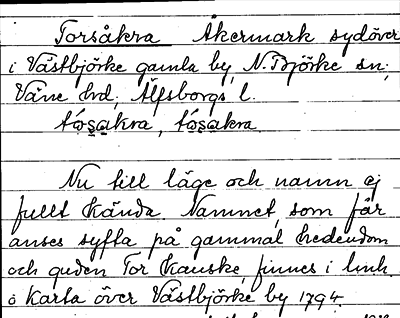 Torsåkra Åkermark sydöver
i Västbjörke gamla by, N. Björke sn;
Väne hd, Älfsborgs l.
tósakra, tósakra
Nu till läge och namn ej
fullt kända. Namnet, som får
anses syfta på gammal hedendom
och guden Tor kanske, finnes i lmh.
ö Karta över Västbjörke by 1794.